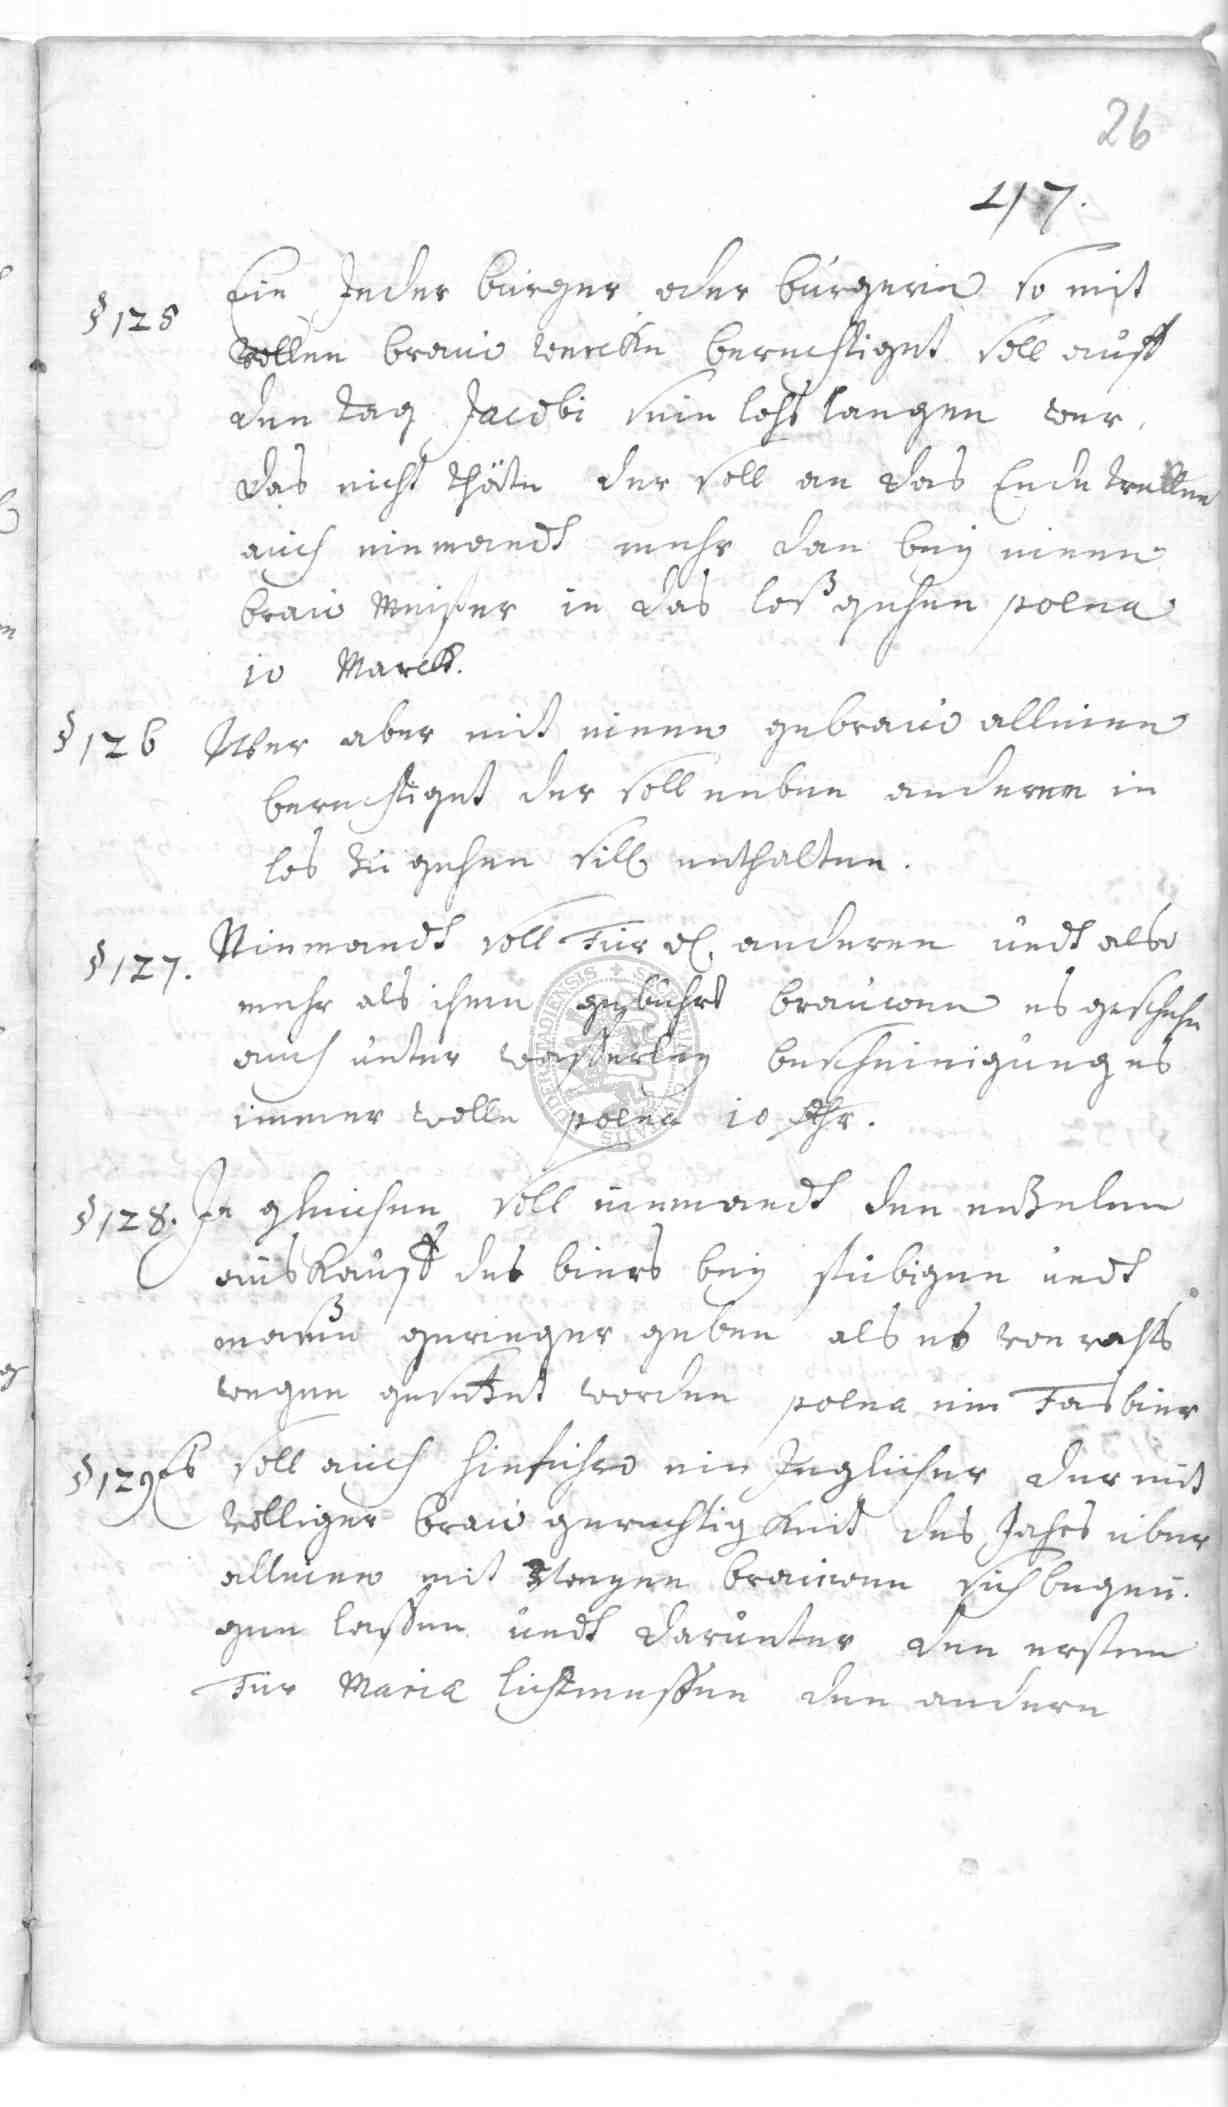 26
47.
§ 125 Ein Jeder bürger oder bürgerin so mit
vollen brau wercke berechtiget soll auff
den tag Jacobi sein lohs langen wer
das nicht thäte der soll an das Ende tretten
auch niemandt mehr dan bey einen
brau Meister in das loß gehen poena
10 Marck.
§ 126 Wer aber mit einen gebrau alleine
berechtiget der soll neben anderen in
los zu gehen sich enthalten.
§ 127. Niemandt soll für d. anderen undt also
mehr als ihme gebührt brauwen es geschehe
auch unter wasserley bescheinigung es
immer wolle poena 10 thr.
§ 128. In gleichen soll niemandt den entzelen
auskauff des biers bey stübigen undt
maßen geringer geben als es von rahts
wegen gesetzet worden poena ein Fas bier
§ 129 Es soll auch hinführo ein Jeglicher der mit
völliger brau gerechtigkeit des Jahrs über
alleine mit brauwen sich begnü-
gen lassen undt darunter den ersten
Für Mariæ lichtmessen den andern